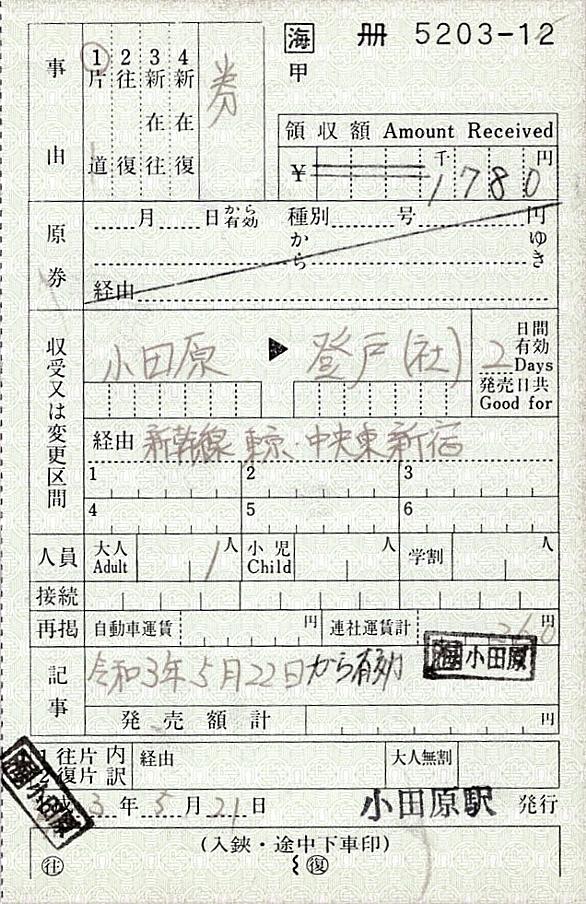 海 冊 5203-12
甲
事由
1 片道
2 往復
3 新在往
4 新在復
券
領収額 Amount Received
¥ 千 円
1780
原券
月 日から有効 種別 号 円
から ゆき
経由
収受又は変更区間
小田原 ▶ 登戸(社)
2 日間有効 Days
発売日共
Good for
経由 新幹線 東京・中央東 新宿
1 2 3
4 5 6
人員 大人 Adult 1人 小児 Child 人 学割 人
接続
再掲 自動車運賃 円 連社運賃計 260 円
記事 令和3年5月22日から有効
海 小田原
発売額計 円
1 往片 内
2 復片 訳
経由 大人無割
海 小田原
3 年 5 月 21 日 小田原駅 発行
(入鋏・途中下車印)
往 復